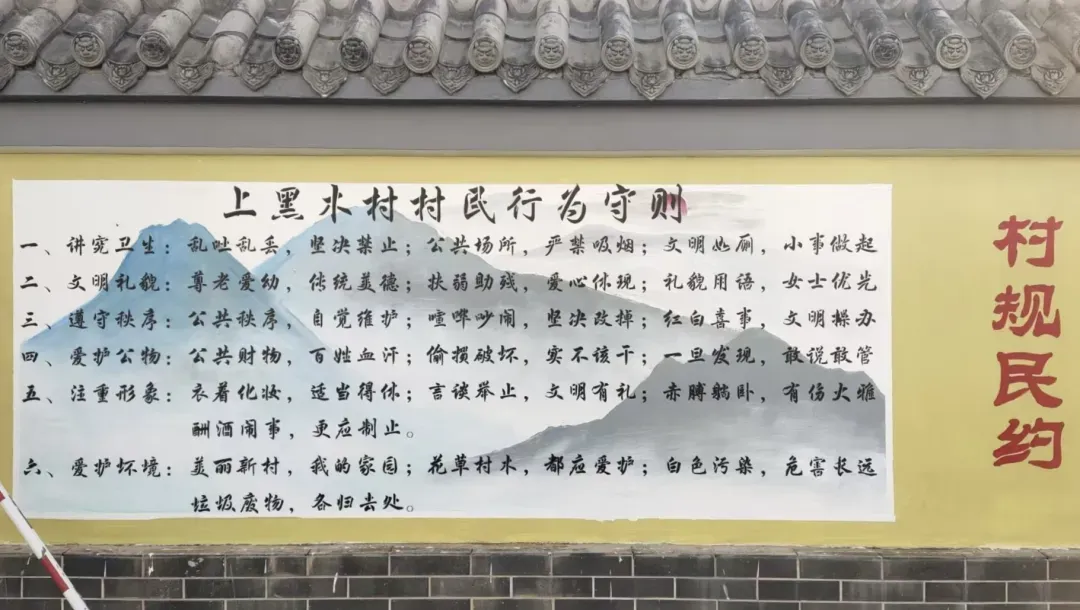 上黑水村村民行为守则
一、讲究卫生：乱吐乱丢，坚决禁止；公共场所，严禁吸烟；文明如厕，小事做起
二、文明礼貌：尊老爱幼，传统美德；扶弱助残，爱心体现；礼貌用语，女士优先
三、遵守秩序：公共秩序，自觉维护；喧哗吵闹，坚决改掉；红白喜事，文明操办
四、爱护公物：公共财物，百姓血汗；偷损破坏，实不该干；一旦发现，敢说敢管
五、注重形象：衣着化妆，适当得体；言谈举止，文明有礼；赤膊躺卧，有伤大雅
酗酒闹事，更应制止。
六、爱护环境：美丽新村，我的家园；花草村木，都应爱护；白色污染，危害长远
垃圾废物，各归去处。
村规民约